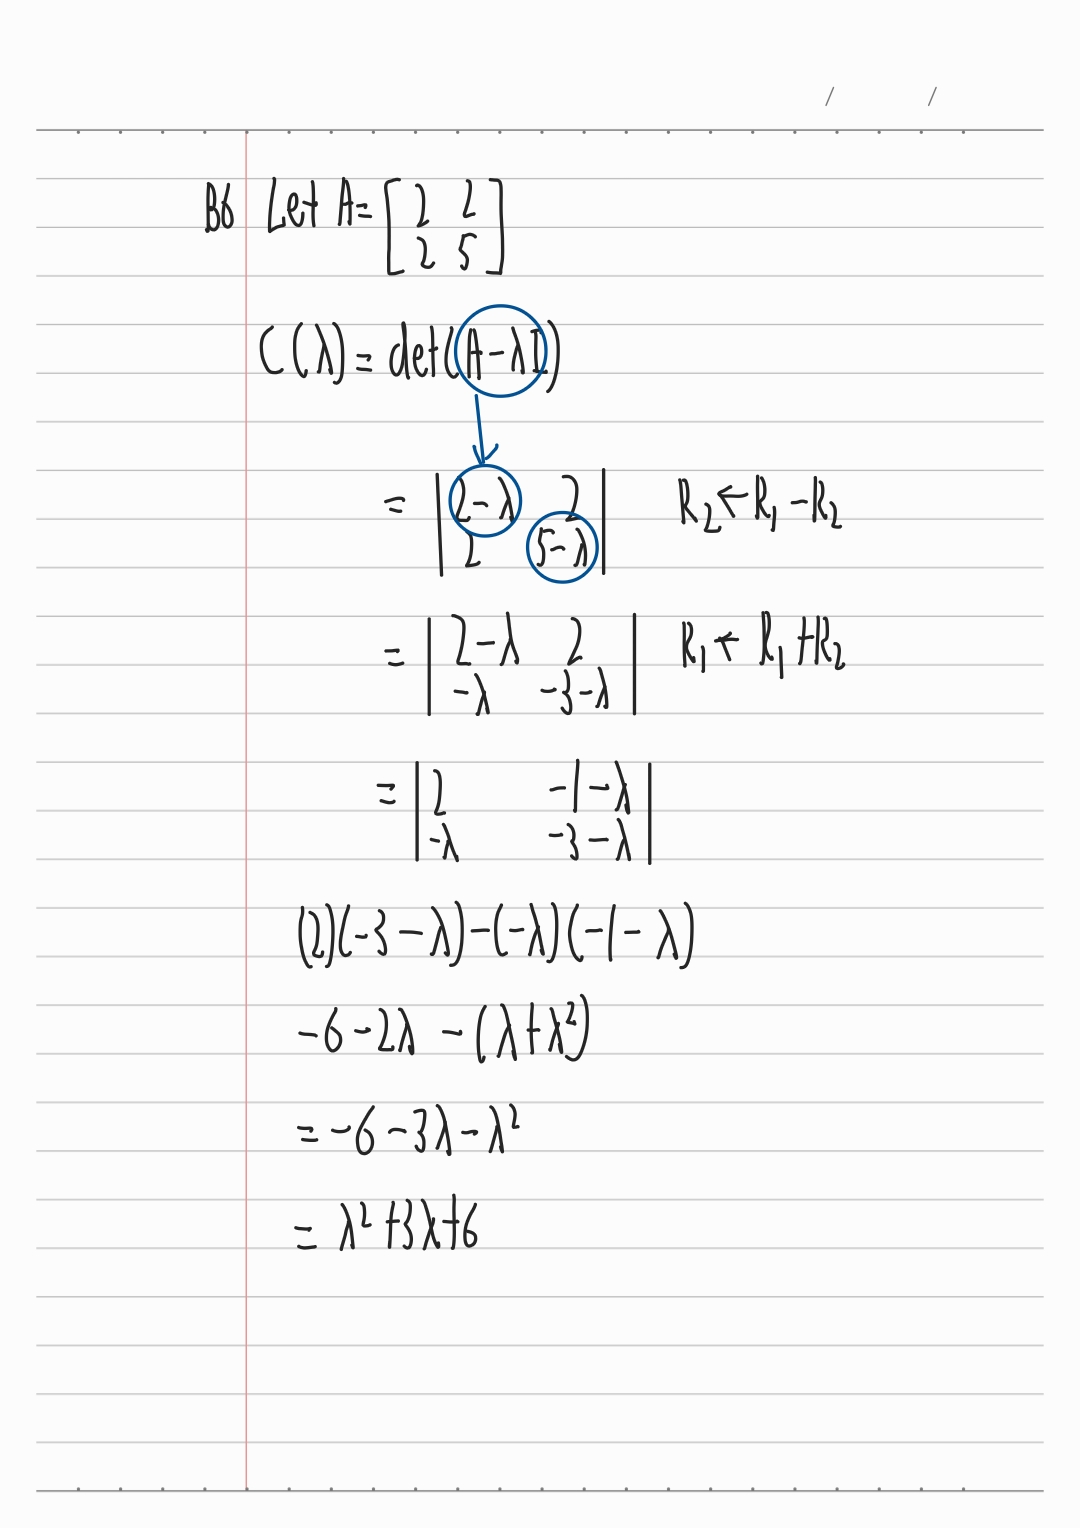 B6 Let A = [2 2
2 5]
C(λ) = det(A - λI)
= |2-λ 2| R₂ ← R₁ - R₂
|2 5-λ|
= |2-λ 2| R₁ ← R₁ + R₂
|-λ -3-λ|
= |2 -1-λ|
|-λ -3-λ|
(2)(-3-λ)-(-λ)(-1-λ)
-6-2λ -(λ+λ²)
= -6-3λ-λ²
= λ²+3λ+6